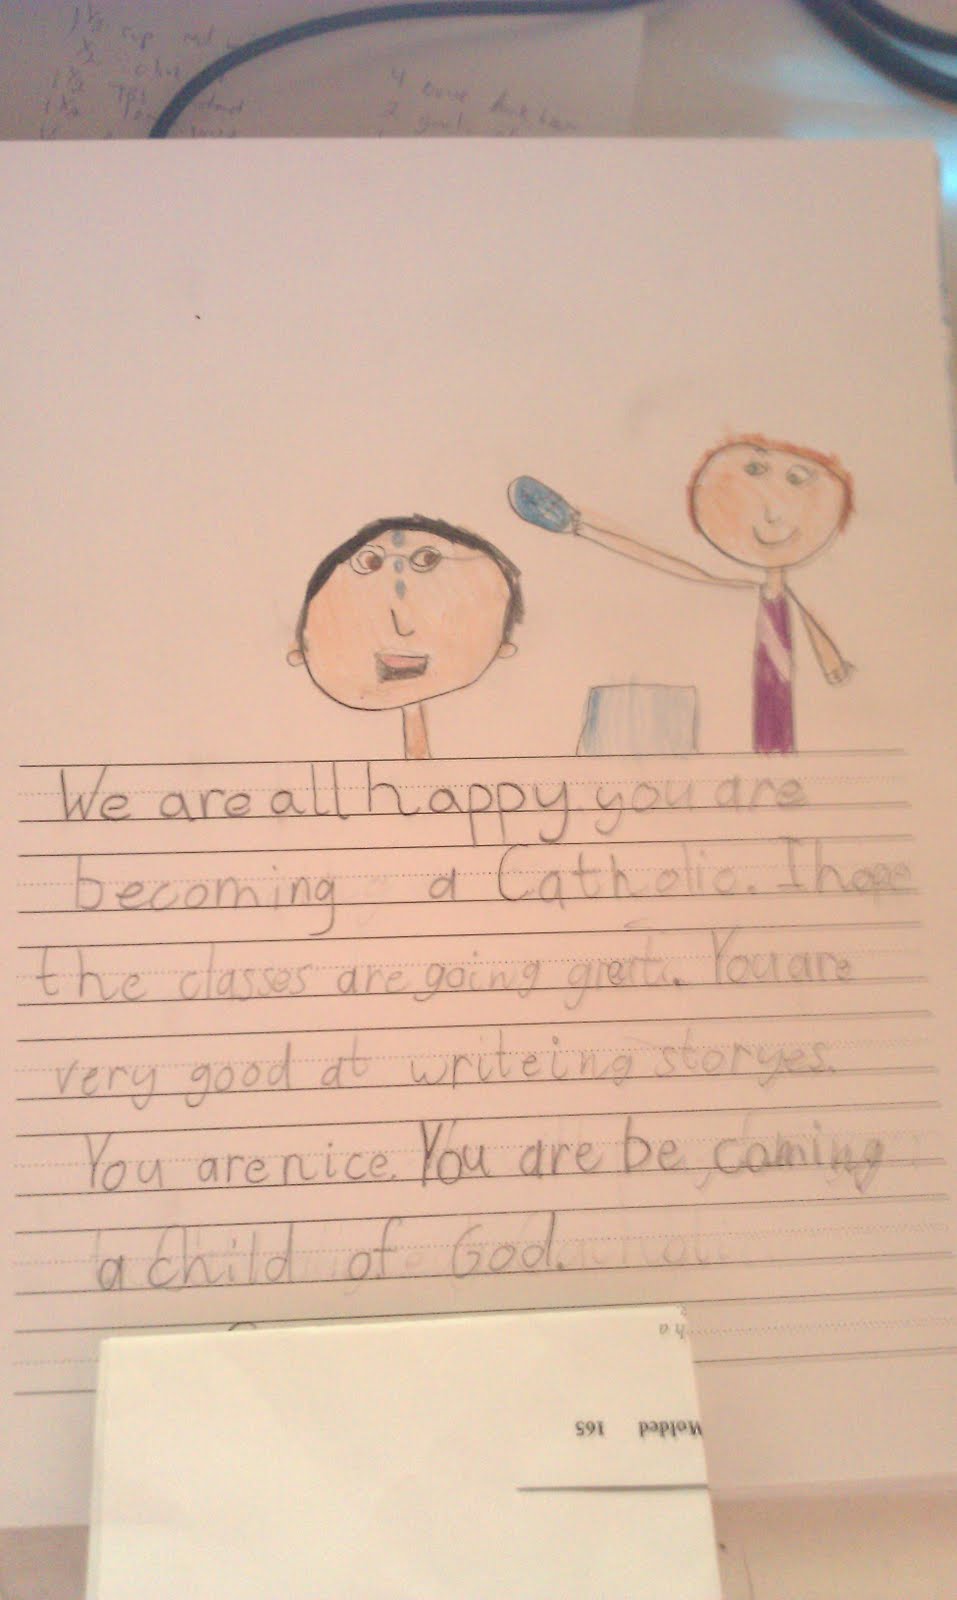 1 ½ cup
4
2
We are all happy you are
becoming a Catholic. I hope
the classes are going great. You are
very good at writeing storyes.
You are nice. You are be coming
a child of God.
Molded 165